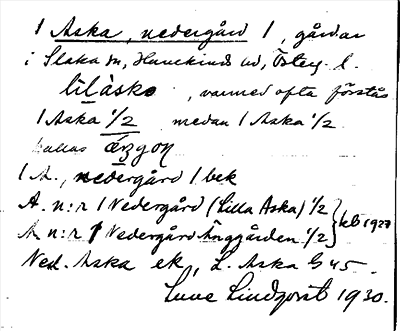 1 Aska, nedergård 1, gårdar
i Slaka sn, Hanekinds hd, Österg. l.
lilàskɷ, varmed ofta förstås
1 Aska 1/2 medan 1 Aska 1/2
kallas ængɷn
1 A., nedergård 1 bek
A. n:r 1 Nedergård (Lilla Aska) 1/2
A n:r 1 Nedergård Änggården 1/2 } klb 1927
Ned. Aska ek, L. Aska G 45.
Sune Lindqvist 1930.